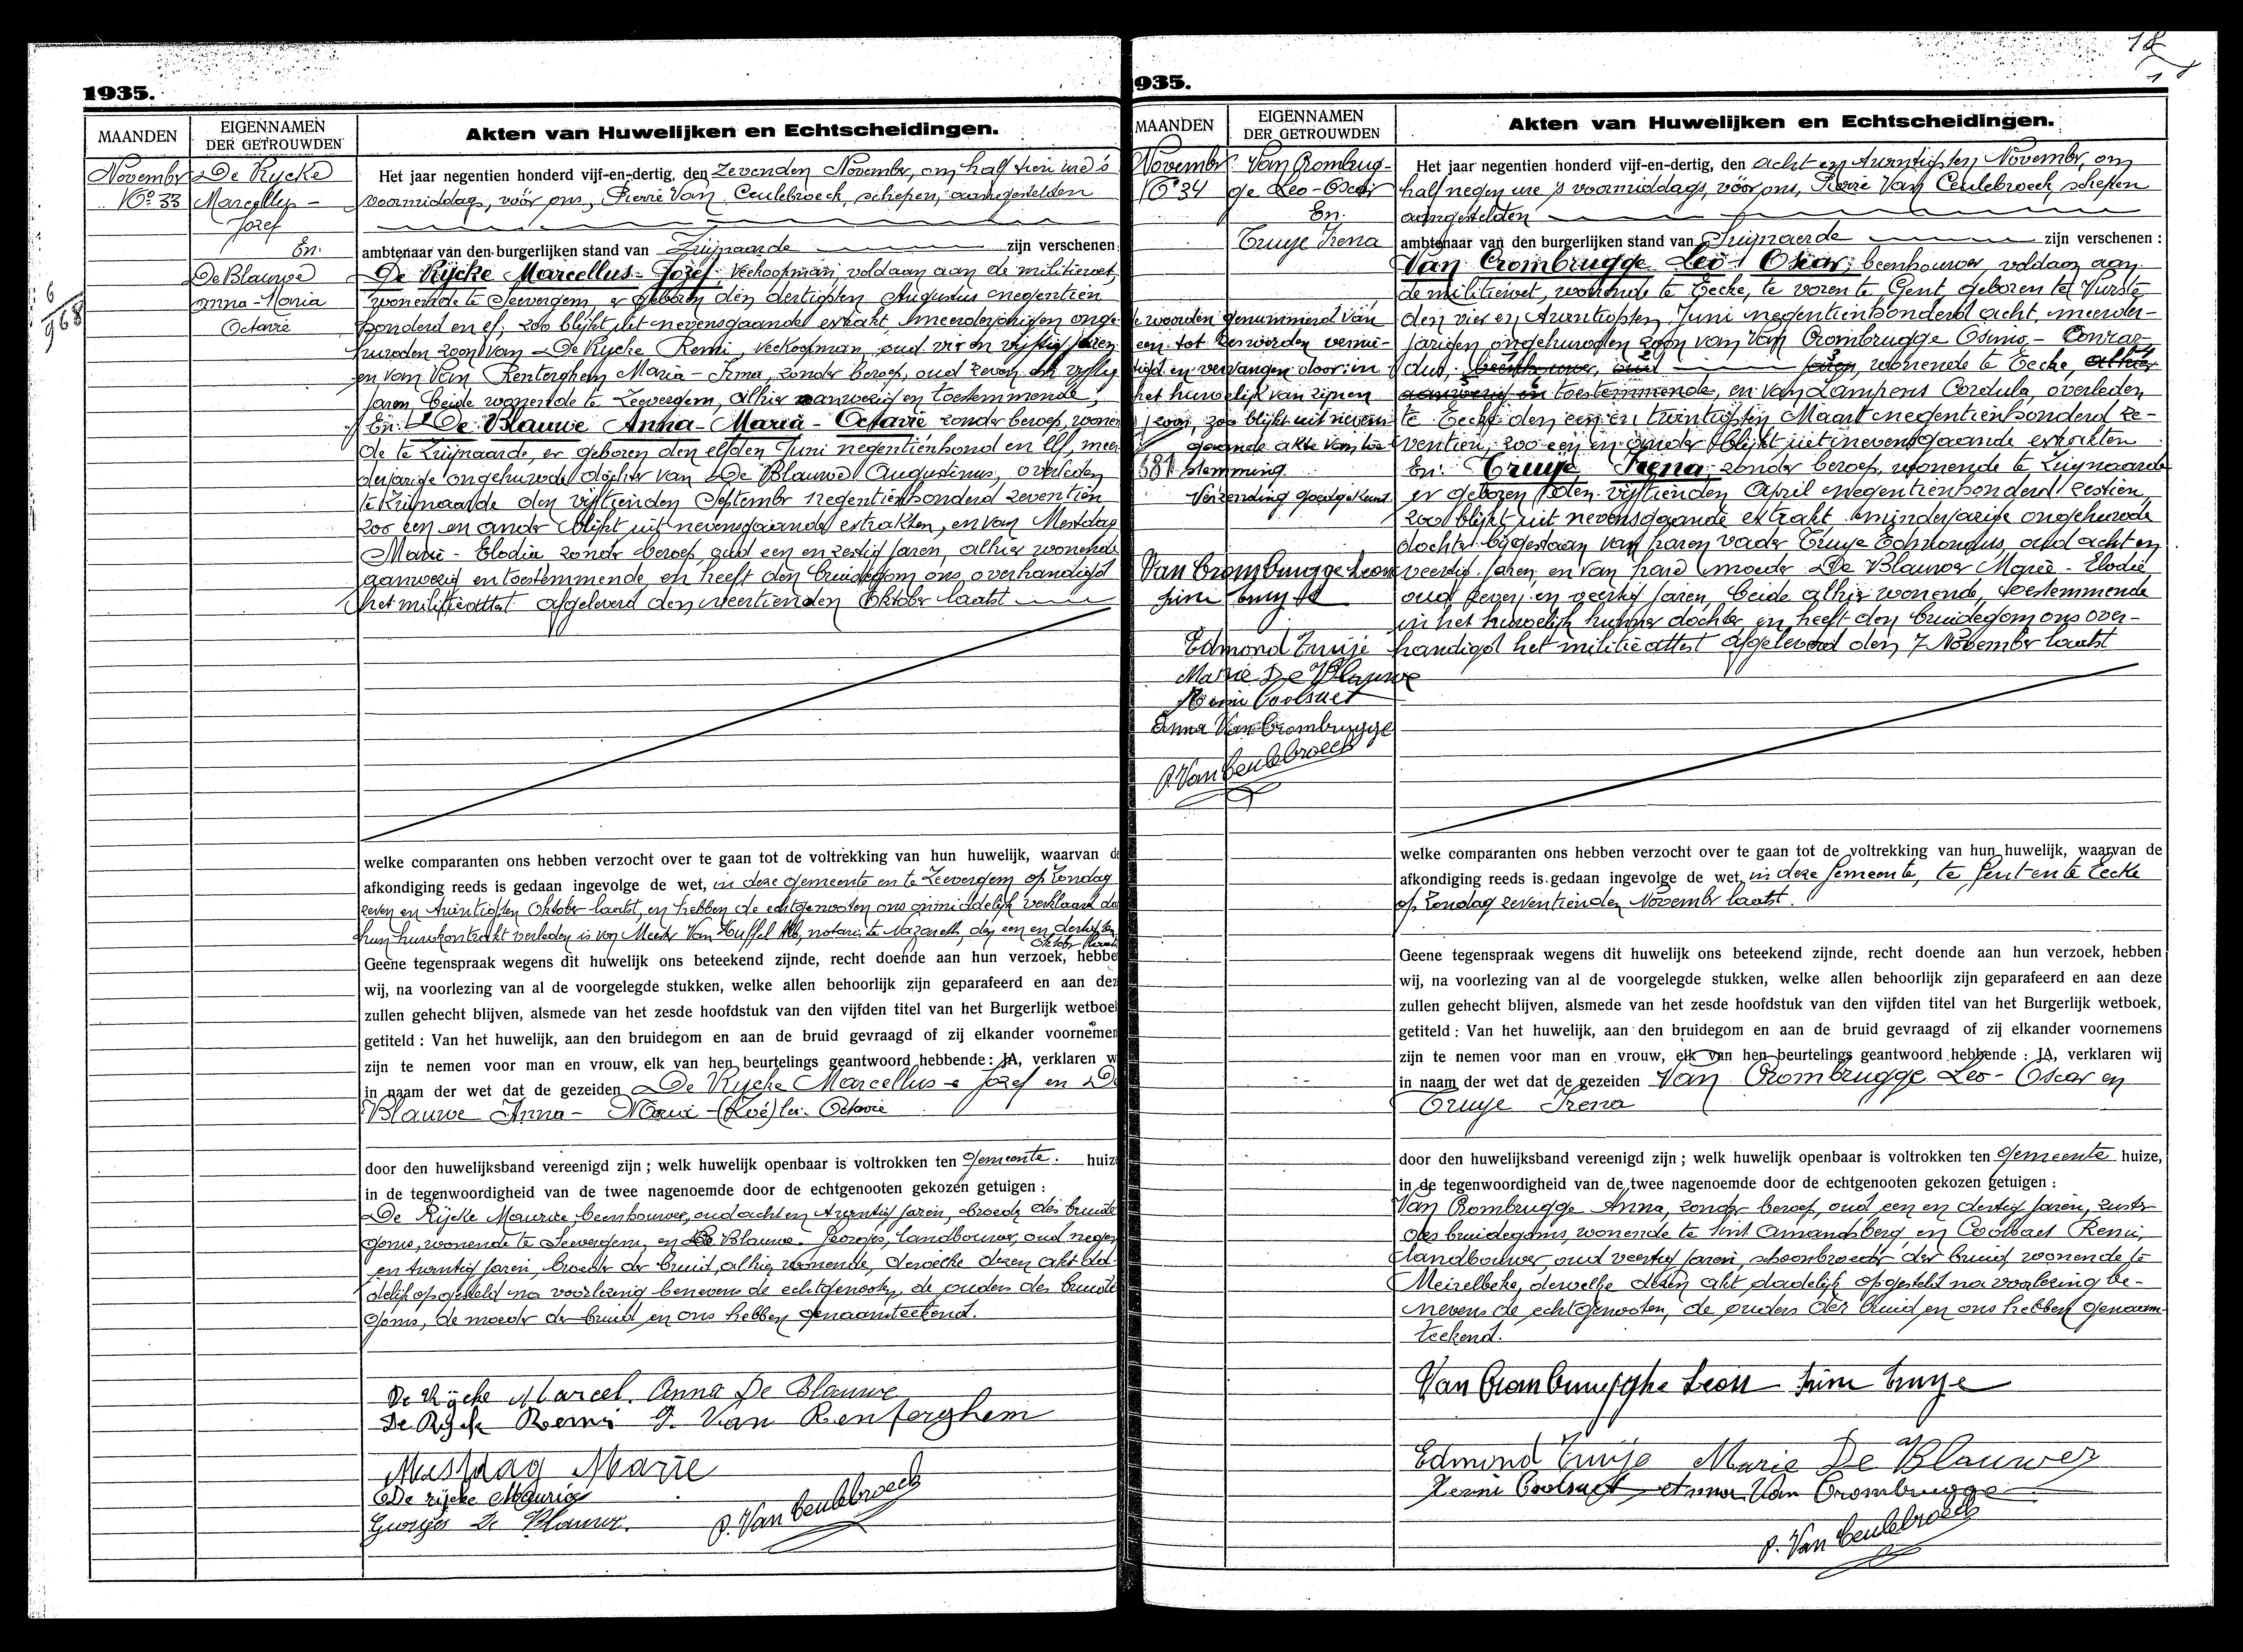 1935.
MAANDEN
EIGENNAMEN
DER GETROUWDEN
Akten van Huwelijken en Echtscheidingen.
November
No 33
De Rycke
Marcellus-
Jozef
En.
De Blauwe
Anna-Maria
Octavie
6
968
Het jaar negentien honderd vijf-en-dertig, den zevenden November, om half tien ure 's
voormiddags, vóór ons, Pierre Van Ceulebroeck, schepen, aangestelden
ambtenaar van den burgerlijken stand van Zwijnaarde zijn verschenen
De Rijcke Marcellus-Jozef, veekoopman, voldaan aan de militiewet,
wonende te Seevergem, er geboren den dertigsten Augustus negentien
honderd en elf, zoo blijkt uit nevensgaande extrakt, meerderjarigen onge-
huwden zoon van De Rycke Remi, veekoopman, oud vier en vijftig jaren
en van Van Renterghem Maria-Irma, zonder beroep, oud zeven en vijftig
jaren, beide wonende te Zeevergem, alhier aanwezig en toestemmende,
En: De Blauwe Anna-Maria-Octavie zonder beroep, wonen
de te Zwijnaarde, er geboren den elfden Juni negentienhond en elf, meer
derjarige ongehuwde dochter van De Blauwe Augustinus, overleden
te Zwijnaarde den vijftienden September negentienhonderd zeventien
zoo een en ander blijkt uit nevensgaande extrakten, en van Mestdag
Marie-Elodie zonder beroep, oud een en zestig jaren, alhier wonende
aanwezig en toestemmende, en heeft den bruidegom ons overhandigd
het militieattest afgeleverd den veertienden Oktober laatst
welke comparanten ons hebben verzocht over te gaan tot de voltrekking van hun huwelijk, waarvan de
afkondiging reeds is gedaan ingevolge de wet, in deze gemeente en te Zeevergem op Zondag
zeven en twintigsten Oktober laatst, en hebben de echtgenooten ons onmiddelijk verklaard dat
hun huwkontrakt verleden is voor Meester Van Huffel Alb, notaris te Nazareth, den een en dertigsten
Oktober laatst
Geene tegenspraak wegens dit huwelijk ons beteekend zijnde, recht doende aan hun verzoek, hebbe
wij, na voorlezing van al de voorgelegde stukken, welke allen behoorlijk zijn geparafeerd en aan dez
zullen gehecht blijven, alsmede van het zesde hoofdstuk van den vijfden titel van het Burgerlijk wetboek
getiteld : Van het huwelijk, aan den bruidegom en aan de bruid gevraagd of zij elkander voornemen
zijn te nemen voor man en vrouw, elk van hen beurtelings geantwoord hebbende : JA, verklaren w
in naam der wet dat de gezeiden De Rycke Marcellus-Jozef en De
Blauwe Anna-Maria- Octavie
door den huwelijksband vereenigd zijn ; welk huwelijk openbaar is voltrokken ten Gemeente. huize
in de tegenwoordigheid van de twee nagenoemde door de echtgenooten gekozen getuigen :
De Rijcke Maurice, beenhouwer, oud acht en twintig jaren, broeder des bruide
goms, wonende te Seevergem, en De Blauwe Georges, landbouwer, oud negen
en twintig jaren, broeder der bruid, alhier wonende, dewelke dezen akt da
delijk opgesteld na voorlezing benevens de echtgenooten, de ouders des bruide
goms, de moeder der bruid en ons hebben genaamteekend.
De Rijcke Marcel. Anna De Blauwe
De Rycke Remi I. Van Renterghem
Mestdag Marie
De rijcke Maurice
Georges De Blauwe.
P. Van Ceulebroeck
18
935.
MAANDEN
EIGENNAMEN
DER GETROUWDEN
Akten van Huwelijken en Echtscheidingen.
November
No 34
Van Crombrug-
ge Leo-Oscar
En.
Truye Irena
de woorden genummerd van
een tot zes worden vernie-
tigd en vervangen door: in
het huwelijk van zijnen
zoon, zoo blijkt uit nevens
gaande akte van toe
stemming
Verzending goedgekeurd
Van Crombrugge Leon
Edmond Truije
Marie De Blauwe
Remi Coolsaet
Anna Van Crombrugge
P. Van Ceulebroeck
Het jaar negentien honderd vijf-en-dertig, den acht en twintigsten November, om
half negen ure 's voormiddags, vóór ons, Pierre Van Ceulebroeck, schepen
aangestelden
ambtenaar van den burgerlijken stand van Zwijnaerde zijn verschenen :
Van Crombrugge Leo-Oscar, beenhouwer, voldaan aan
de militiewet, wonende te Eecke, te voren te Gent, geboren te Vurste
den vier en twintigsten Juni negentienhonderd acht, meerder-
jarigen ongehuwden zoon van Van Crombrugge Osimo,- Conraz-
dus, wonende te Eecke,
aanwezig en toestemmende, en van Lampens Cordula, overleden
te Eecke den een en twintigsten Maart negentienhonderd ze-
ventien, zoo een en ander blijkt uit nevensgaande extrakten
En: Truije Irena, zonder beroep, wonende te Zwijnaarde
er geboren den vijftienden April negentienhonderd zestien,
zoo blijkt uit nevensgaande extrakt minderjarige ongehuwde
dochter bijgestaan van haren vader Truye Edmondus, oud acht en
veertig jaren, en van hare moeder De Blauwe Marie-Elodie
oud zeven en veertig jaren, beide alhier wonende, toestemmende
in het huwelijk hunner dochter en heeft den bruidegom ons over-
handigd het militieattest afgeleverd den 7 November laatst
welke comparanten ons hebben verzocht over te gaan tot de voltrekking van hun huwelijk, waarvan de
afkondiging reeds is gedaan ingevolge de wet, in deze Gemeente, te Gent en te Eecke
op Zondag zeventienden November laatst.
Geene tegenspraak wegens dit huwelijk ons beteekend zijnde, recht doende aan hun verzoek, hebben
wij, na voorlezing van al de voorgelegde stukken, welke allen behoorlijk zijn geparafeerd en aan deze
zullen gehecht blijven, alsmede van het zesde hoofdstuk van den vijfden titel van het Burgerlijk wetboek,
getiteld : Van het huwelijk, aan den bruidegom en aan de bruid gevraagd of zij elkander voornemens
zijn te nemen voor man en vrouw, elk van hen beurtelings geantwoord hebbende : JA, verklaren wij
in naam der wet dat de gezeiden Van Crombrugge Leo-Oscar en
Truye Irena
door den huwelijksband vereenigd zijn ; welk huwelijk openbaar is voltrokken ten Gemeente huize,
in de tegenwoordigheid van de twee nagenoemde door de echtgenooten gekozen getuigen :
Van Crombrugge Anna, zonder beroep, oud een en dertig jaren, zuster
des bruidegoms, wonende te Sint Amandsberg, en Coolsaet Remi,
landbouwer, oud veertig jaren, schoonbroeder der bruid, wonende te
Meirelbeke, dewelke dezen akt dadelijk opgesteld na voorlezing be-
nevens de echtgenooten, de ouders der bruid en ons hebben genaam-
teekend.
Van Crombrugghe Leon Irène Truye
Edmond Truije Marie De Blauwe
Remi Coolsaet Anna Van Crombrugge
P. Van Ceulebroeck